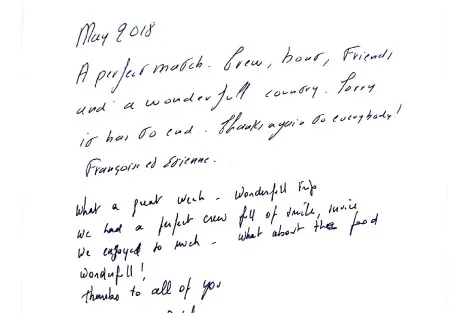 May 2018
A perfect match. Crew, boat, Friends
and a wonderfull country. Sorry
it has to end. Thanks again to everybody!
Françoise et Etienne.
What a great week - Wonderfull Trip
We had a perfect crew full of smile,
We enjoyed so much - what about the food
Wonderfull!
thanks to all of you